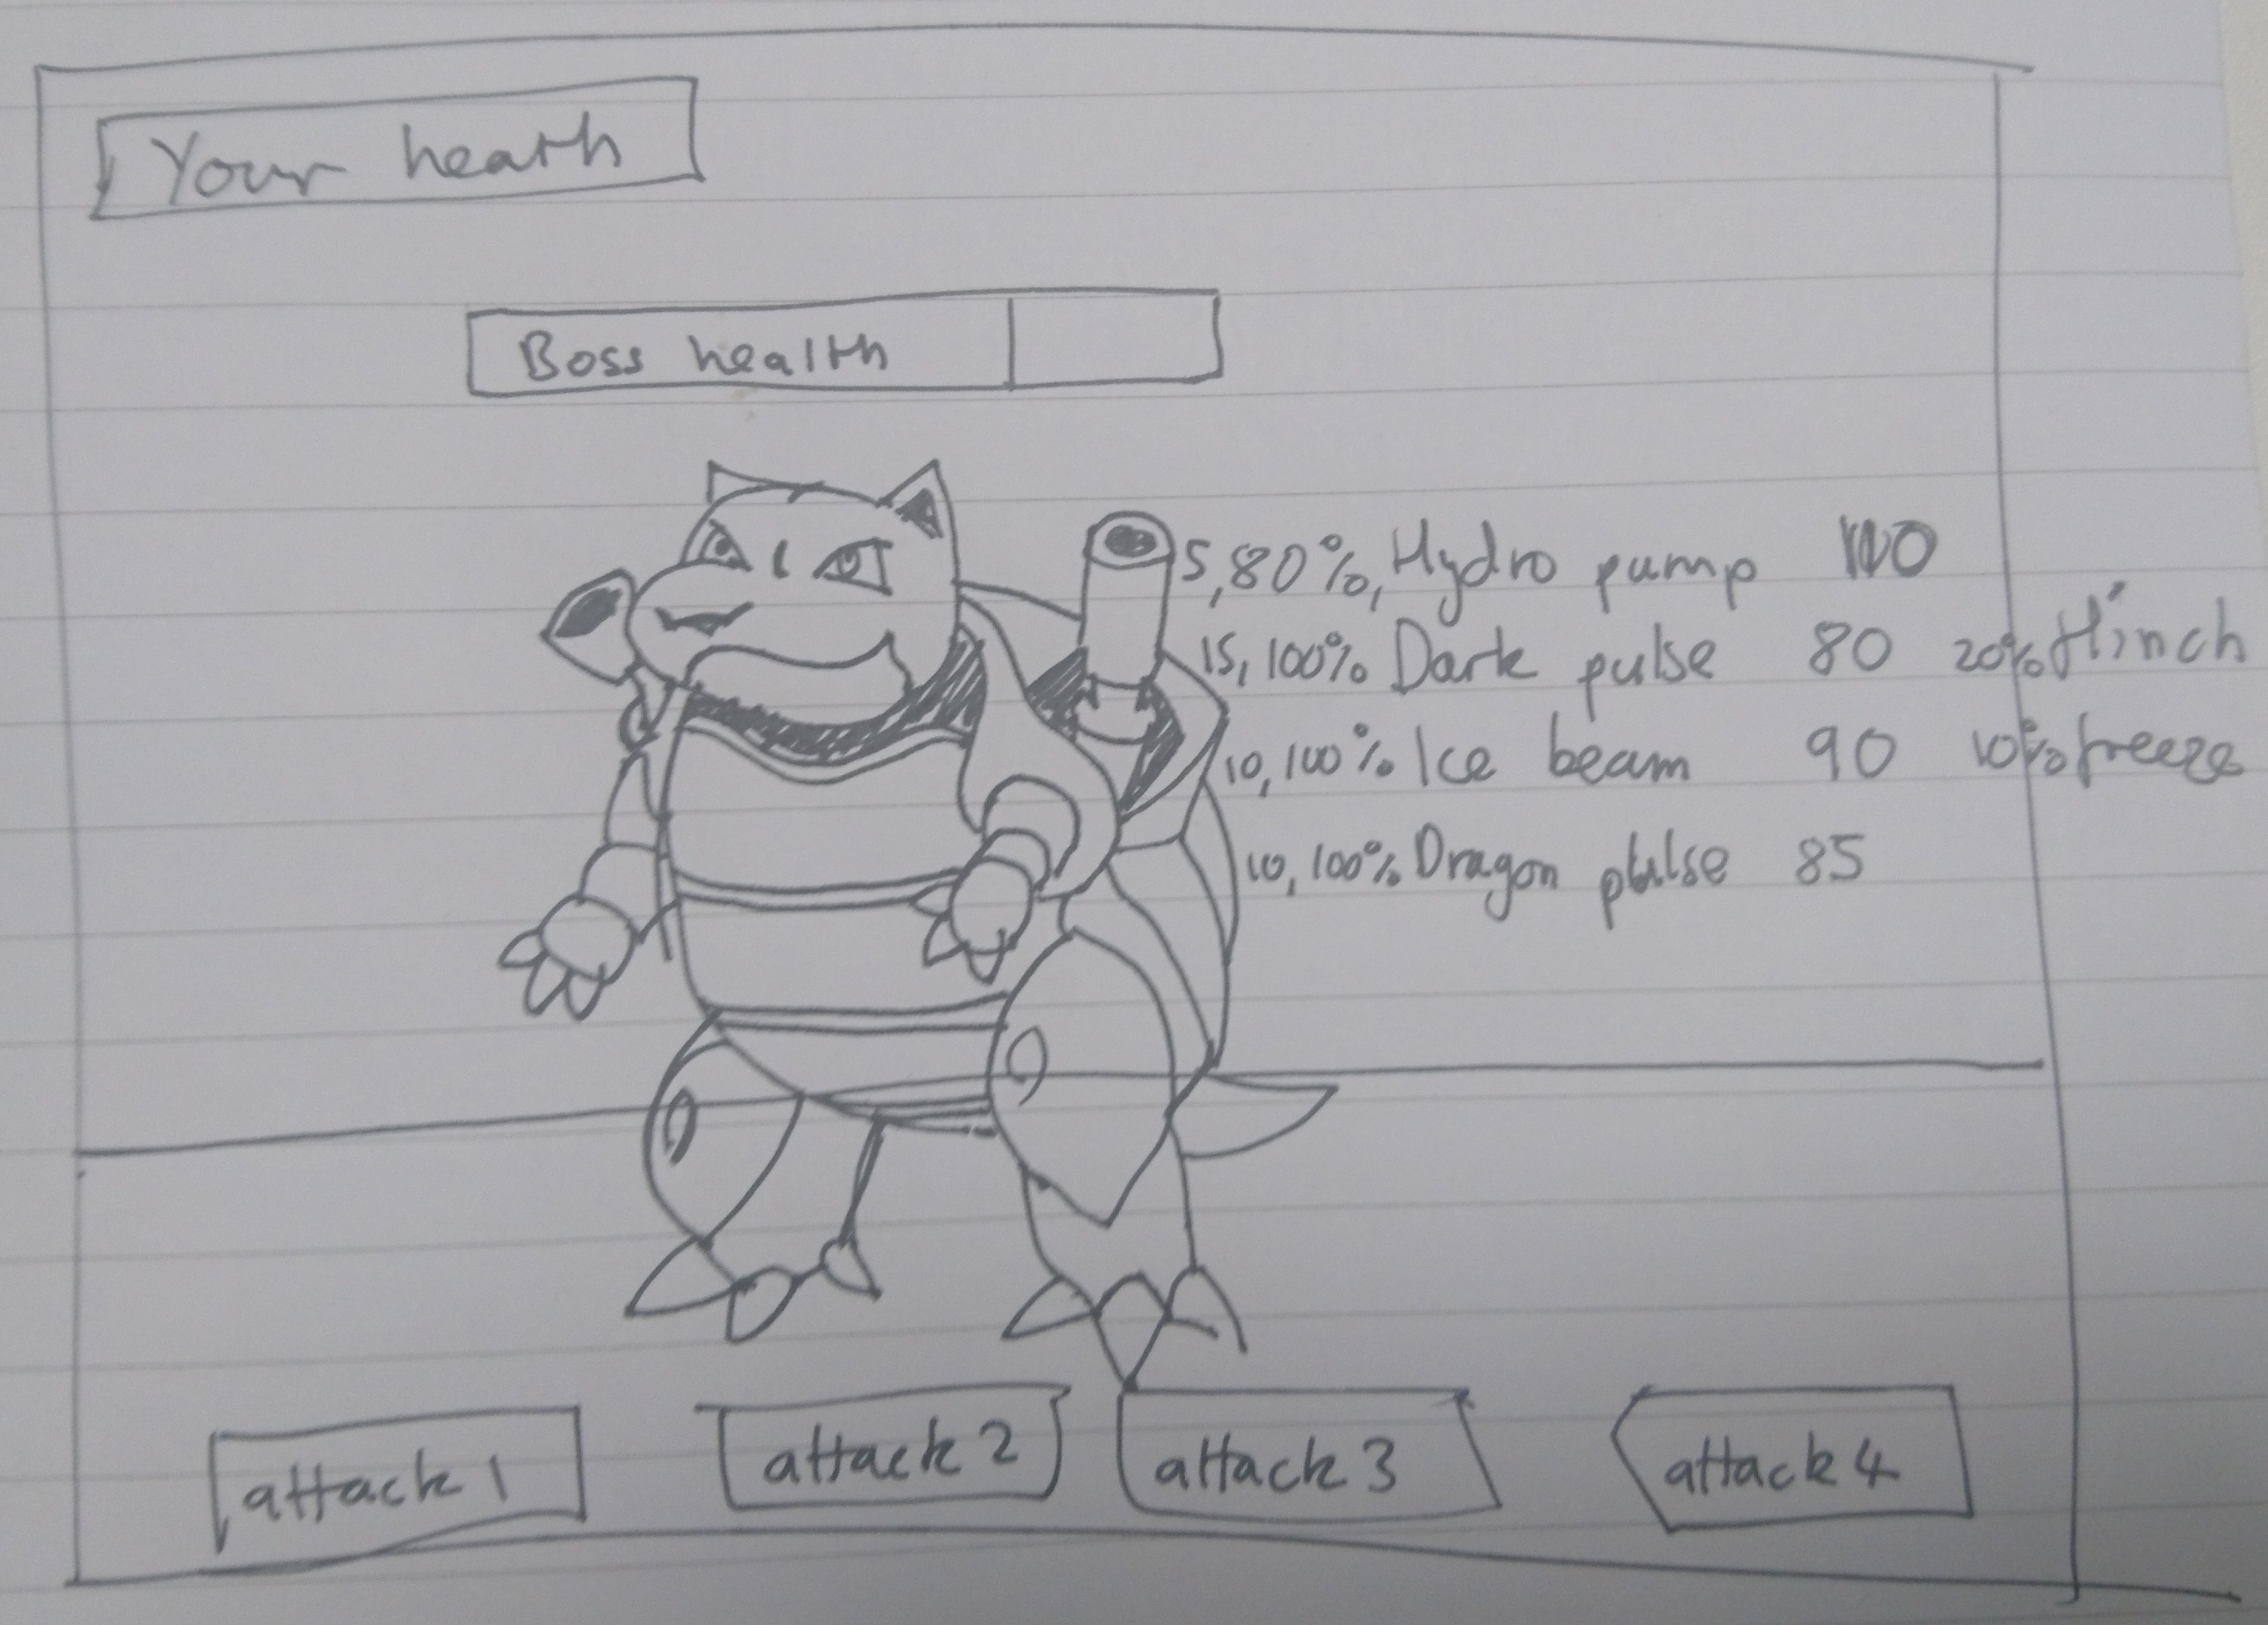 Your heath
Boss health
5,80%, Hydro pump
15,100% Dark pulse 80 20% flinch
10,100% Ice beam 90 10% freeze
10,100% Dragon pulse 85
attack 1
attack 2
attack 3
attack 4